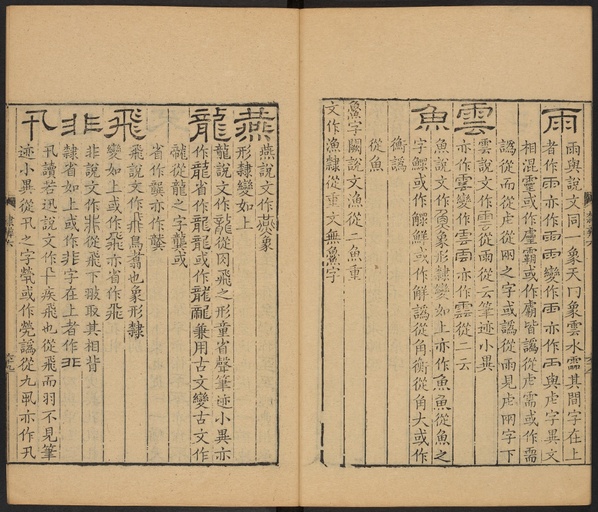 雨
雨與說文同一象天冂象雲水霝其間字在上
者作雨亦作雨雨變作雨亦作雨與虍字異文
相混靈或作霝霸或作覇皆譌從虍需或作需
譌從而從虍從兩之字或譌從雨見虍兩字下
雲
雲說文作雲從雨從云筆迹小異
亦作雲變作雲雲亦作雲從二云
魚
魚說文作魚象形隸變如上亦作魚魚從魚之
字鰥或作鰥鮮或作鮮譌從角衡從角大或作
衡譌
從魚
䲆字闕說文漁從䲆魚重
文作漁隸從重文無䲆字
燕
燕說文作燕象
形隸變如上
龍
龍說文作龍從肉飛之形童省聲筆迹小異亦
作龍省作龍龍或作龍龗兼用古文變古文作
龍從龍之字龔或
省作龔亦作龔
飛
飛說文作飛鳥翥也象形隸
變如上或作飛亦省作飛
非
非說文作非從飛下翄取其相背
隸省如上或作非字在上者作非
卂
卂讀若迅說文作卂疾飛也從飛而羽不見筆
迹小異從卂之字煢或作煢譌從九虱亦作卂